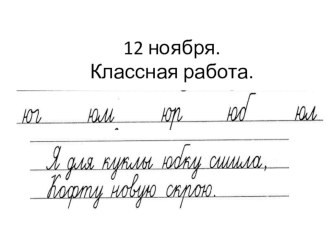 12 ноября.
Классная работа.
юг юм юр юб юл
Я для куклы юбку сшила,
Кофту новую скрою.